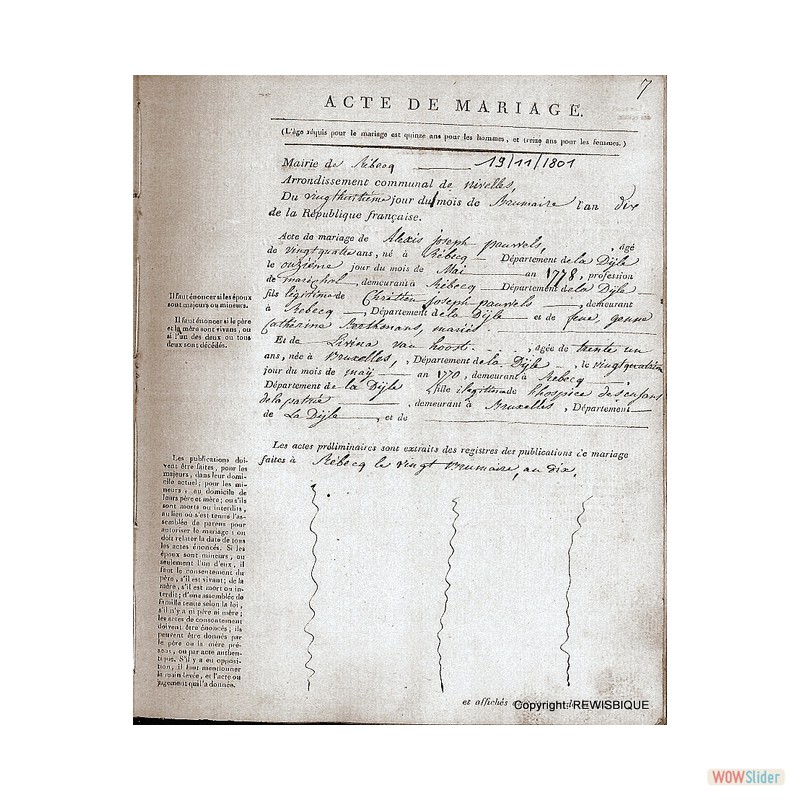 7
ACTE DE MARIAGE.
(L'âge réquis pour le mariage est quinze ans pour les hommes, et treize ans pour les femmes.)
Mairie de Rébecq 19/11/1801
Arrondissement communal de nivelles,
Du vingthuitième jour du mois de Brumaire l'an dix
de la République française.
Acte de mariage de Alexis joseph pauwels, âgé
de vingtquatre ans, né à Rébecq Département de la Dÿle
le onzième jour du mois de Mai an 1778, profession
de maréchal, demeurant à Rébecq Département de la Dÿle
fils légitime de Chrétien joseph pauwels, demeurant
à Rebecq, Département de la Dyle et de feue
Catherine mariés
Et de Livina van hoost, agée de trente un
ans, née à Bruxelles, Département de la Dÿle, le
jour du mois de maÿ an 1770, demeurant à Rebecq,
Département de la Dÿle fille ilegitime de l'hospice des enfans
de la patrie, demeurant à Bruxelles, Département
de La Dijle, et de
Les actes préliminaires sont extraits des registres des publications de mariage
faites à Rébecq le vingt Brumaire, an dix.
et affichés
Il faut énoncer si les époux
sont majeurs ou mineurs.
Il faut énoncer si le père
et la mère sont vivans, ou
si l'un des deux ou tous
deux sont décédés.
Les publications doi-
vent être faites, pour les
majeurs, dans leur domi-
cile actuel; pour les mi-
neurs, au domicile de
leurs père et mère; ou s'ils
sont morts ou interdits,
au lieu où s'est tenue l'as-
semblée de parens pour
autoriser le mariage: on
doit relater la date de tous
les actes énoncés. Si les
époux sont mineurs, ou
seulement l'un d'eux, il
faut le consentement du
père, s'il est vivant; de la
mère, s'il est mort ou in-
terdit; d'une assemblée de
famille tenue selon la loi,
s'il n'y a ni père ni mère;
les actes de consentement
doivent être énoncés; ils
peuvent être donnés par
le père ou la mère pré-
sent, ou par acte authen-
tique. S'il y a eu opposi-
tion, il faut mentionner
la main levée, et l'acte ou
jugement qui l'a donnée.
Copyright: REWISBIQUE
WOWSlider